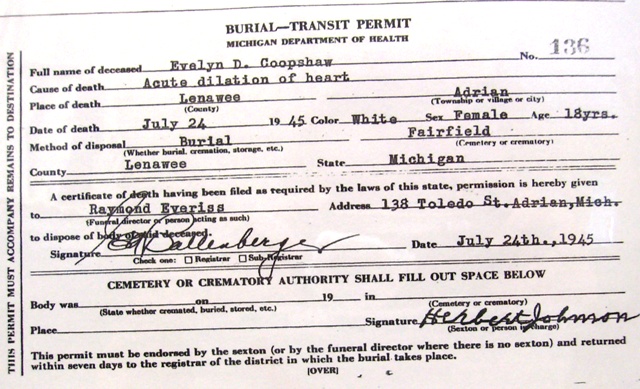 BURIAL—TRANSIT PERMIT
MICHIGAN DEPARTMENT OF HEALTH
No. 136
Full name of deceased Evelyn D. Coopshaw
Cause of death Acute dilation of heart
Place of death Lenawee Adrian
(County) (Township or village or city)
Date of death July 24 1945 Color White Sex Female Age 18yrs.
Method of disposal Burial Fairfield
(Whether burial, cremation, storage, etc.) (Cemetery or crematory)
County Lenawee State Michigan
A certificate of death having been filed as required by the laws of this state, permission is hereby given
to Raymond Everiss Address 138 Toledo St.Adrian,Mich.
(Funeral director or person acting as such)
to dispose of body of said deceased.
Signature Ballenberger Date July 24th.,1945
Check one: □ Registrar □ Sub-Registrar
CEMETERY OR CREMATORY AUTHORITY SHALL FILL OUT SPACE BELOW
Body was on 19 in
(State whether cremated, buried, stored, etc.) (Cemetery or crematory)
Place Signature Herbert Johnson
(Sexton or person in charge)
This permit must be endorsed by the sexton (or by the funeral director where there is no sexton) and returned
within seven days to the registrar of the district in which the burial takes place.
[OVER]
THIS PERMIT MUST ACCOMPANY REMAINS TO DESTINATION